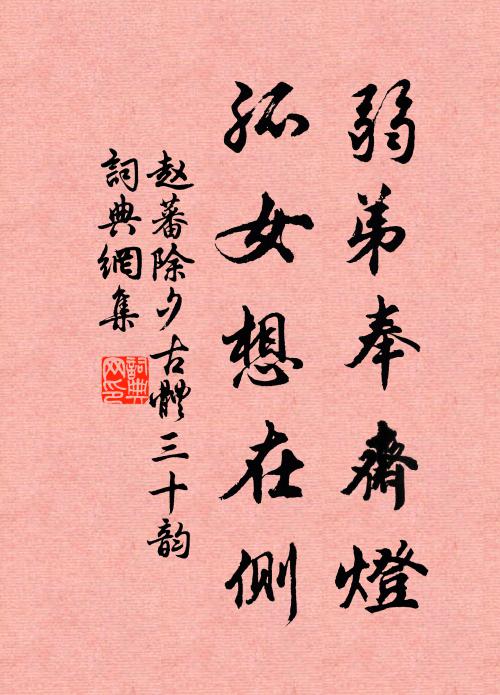 弱弟奉齋燈
孤女想在側
赵蕃除夕古體三十韵
詞典網集
詞典网印